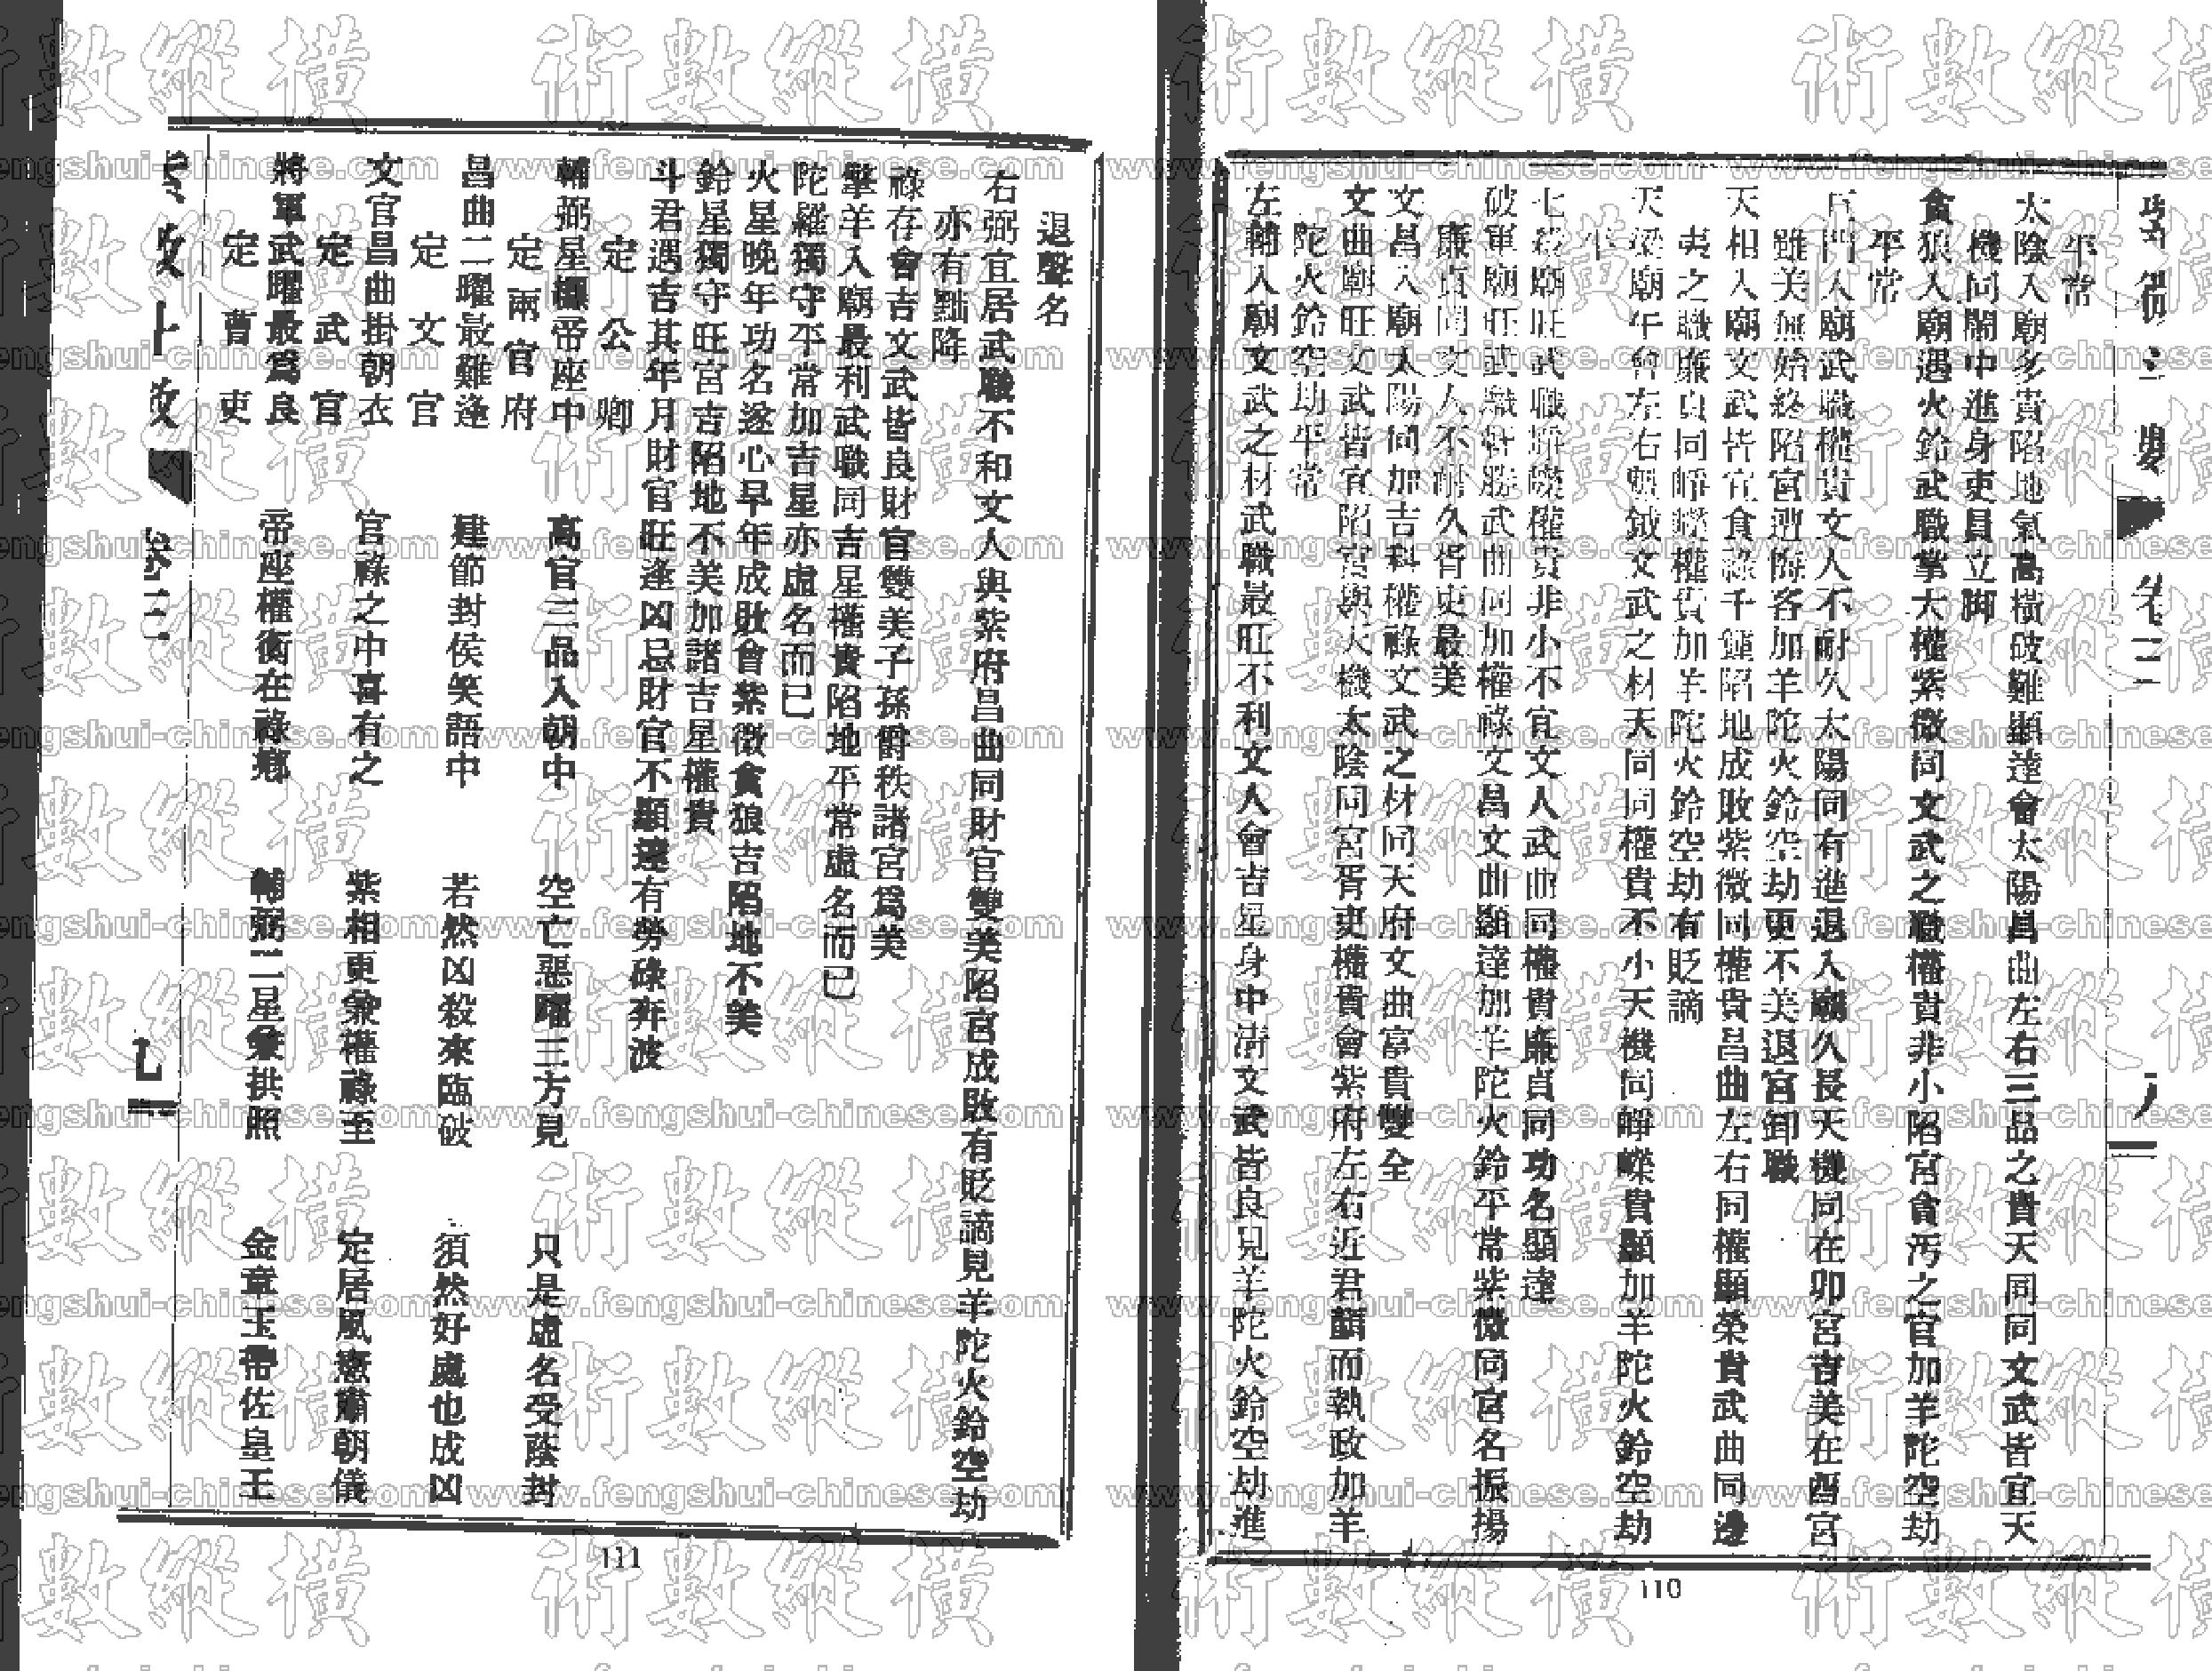 平常
太陰入廟多貴陷地氣高橫破難顯達會太陽昌曲左右三品之貴天同同文武皆宜天
機同鬧中進身吏員立脚
貪狼入廟遇火鈴武職掌大權紫微同文武之職權貴非小陷宮貪汚之官加羊陀空劫
平常
巨門入廟武職權貴文人不耐久太陽同有進退入廟久長天機同在卯宮吉美在酉宮
雖美無始終陷宮遭悔吝加羊陀火鈴空劫更不美退官卸職
天相入廟文武皆宜食祿千鍾陷地成敗紫微同權貴昌曲左右同權顯榮貴武曲同邊
夷之職廉貞同崢嶸權貴加羊陀火鈴空劫有貶謫
天梁廟午會左右魁鉞文武之材天同同權貴不小天機同崢嶸貴顯加羊陀火鈴空劫
平
七殺廟旺武職崢嶸權貴非小不宜文人武曲同權貴廉貞同功名顯達
破軍廟旺武職軒勝武曲同加權祿文昌文曲顯達加羊陀火鈴平常紫微同宮名振揚
廉貞同文人不耐久胥吏最美
文昌入廟太陽同加吉科權祿文武之材同天府文曲富貴雙全
文曲廟旺文武皆宜陷宮與天機太陰同宮胥吏權貴會紫府左右近君顏而執政加羊
陀火鈴空劫平常
左輔入廟文武之材武職最旺不利文人會吉星身中清文武皆良見羊陀火鈴空劫進
卷三
110
退聲名
右弼宜居武職不和文人與紫府昌曲同財官雙美陷宮成敗有貶謫見羊陀火鈴空劫
亦有黜降
祿存會吉文武皆良財官雙美子孫爵秩諸宮爲美
擎羊入廟最利武職同吉星權貴陷地平常虛名而已
陀羅獨守平常加吉星亦虛名而已
火星晚年功名遂心早年成敗會紫微貪狼吉陷地不美
鈴星獨守旺宮吉陷地不美加諸吉星權貴
斗君遇吉其年月財官旺逢凶忌財官不顯達有勞碌奔波
定公卿
輔弼星纏帝座中 高官三品入朝中 空亡惡曜三方見 只是虛名受蔭封
定兩官府
昌曲二曜最難逢 建節封侯笑語中 若然凶殺來臨破 須然好處也成凶
定文官
文官昌曲掛朝衣 官祿之中喜有之 紫相更兼權祿至 定居風憲肅朝儀
定武官
將軍武曜最爲良 帝座權衡在祿鄉 輔弼二星兼拱照 金章玉帶佐皇王
定曹吏
卷三
九
111
橫縱數術
www.fengshui-chinese.com